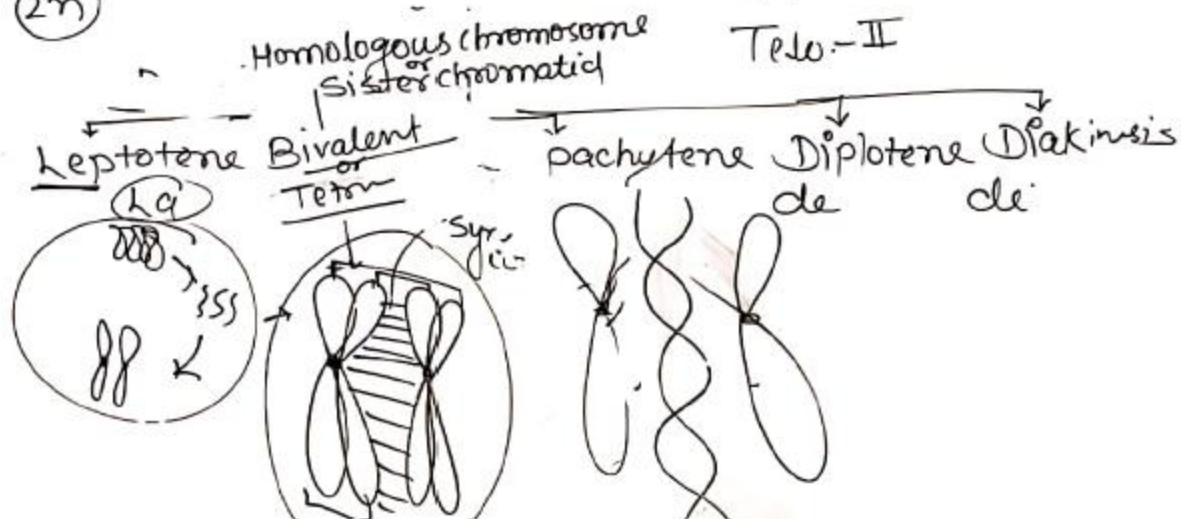 2n
Homologous chromosome
or
Sister chromatid
Telo.-II
Leptotene Bivalent pachytene Diplotene Diakinesis
or
de di